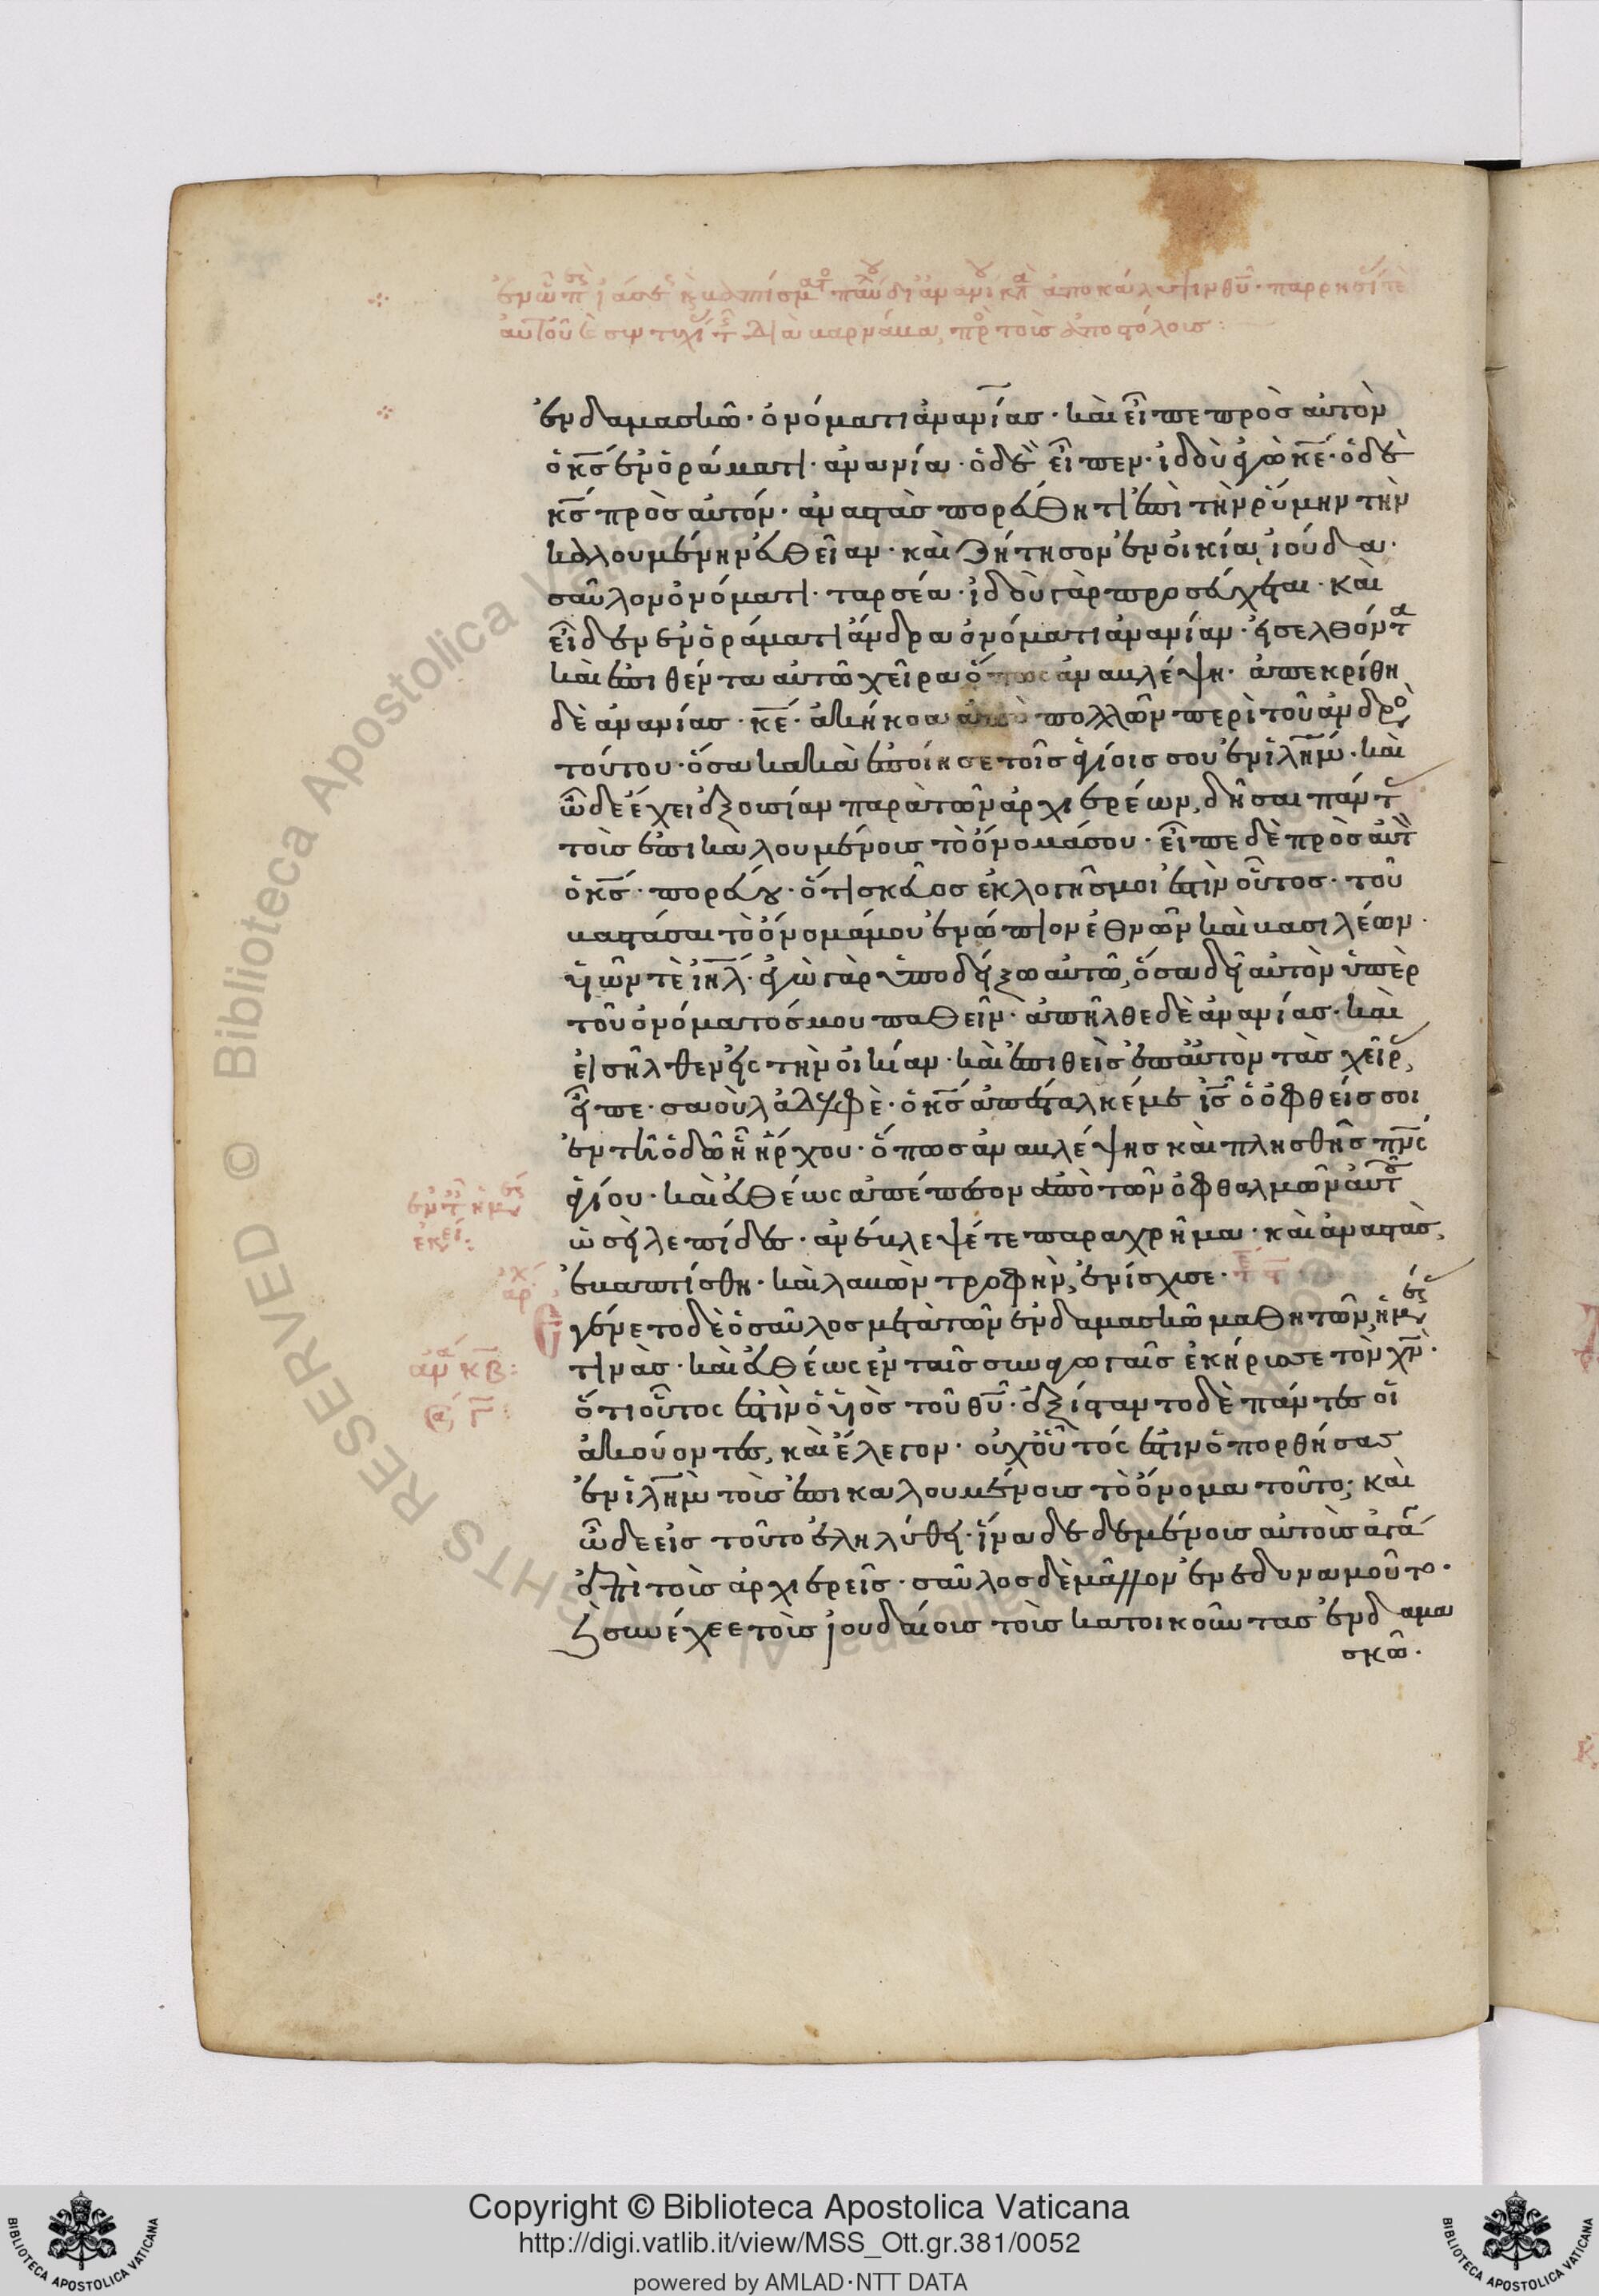 ἐν δαμασκῶ· ὀνόματι ἀνανίας· καὶ εἶπε πρὸς αὐτὸν
ὁ κ̅ς ἐν ὁράματι· ἀνανία· ὁ δὲ εἶπεν· ἰδοὺ ἐγὼ κ̅ε· ὁ δὲ
κ̅ς πρὸς αὐτόν· ἀναστὰς πορεύθητι ἐπὶ τὴν ῥύμην τὴν
καλουμένην εὐθεῖαν· καὶ ζήτησον ἐν οἰκία ἰούδα·
σαῦλον ὀνόματι· ταρσέα· ἰδοὺ γὰρ προσεύχεται· καὶ
εἶδεν ἐν ὁράματι ἄνδρα ὀνόματι ἀνανίαν· εἰσελθόντα
καὶ ἐπιθέντα αὐτῶ χεῖρα ὅπως ἀναβλέψη· ἀπεκρίθη
δὲ ἀνανίας· κ̅ε· ἀκήκοα ἀπὸ πολλῶν περὶ τοῦ ἀνδρὸς
τούτου· ὅσα κακὰ ἐποίησε τοῖς ἁγίοις σου ἐν ἰλῆμ· καὶ
ὧδε ἔχει ἐξουσίαν παρὰ τῶν ἀρχιερέων, δῆσαι πάντας
τοὺς ἐπικαλουμένους τὸ ὄνομά σου· εἶπε δὲ πρὸς αὐτὸν
ὁ κ̅ς· πορεύου· ὅτι σκεῦος ἐκλογῆς μοι ἐστὶν οὗτος· τοῦ
βαστάσαι τὸ ὄνομά μου ἐνώπιον ἐθνῶν καὶ βασιλέων·
υἱῶν τὲ ἰη̅λ· ἐγὼ γὰρ ὑποδείξω αὐτῶ, ὅσα δεῖ αὐτὸν ὑπὲρ
τοῦ ὀνόματός μου παθεῖν· ἀπῆλθε δὲ ἀνανίας· καὶ
εἰσῆλθεν εἰς τὴν οἰκίαν· καὶ ἐπιθεὶς ἐπ αὐτὸν τὰς χεῖρας,
εἶπε· σαοὺλ ἀδελφὲ· ὁ κ̅ς ἀπέσταλκέ με ι̅ς ὁ ὀφθείς σοι
ἐν τῆ ὁδῶ ἧ ἤρχου· ὅπως ἀναβλέψης καὶ πλησθῆς πν̅ς
ἁγίου· καὶ εὐθέως ἀπέπεσον ἀπὸ τῶν ὀφθαλμῶν αὐτοῦ
ὡσεὶ λεπίδες· ἀνέβλεψέ τε παραχρῆμα· καὶ ἀναστὰς,
ἐβαπτίσθη· καὶ λαβὼν τροφὴν, ἐνίσχυσε·
Ἐγένετο δὲ ὁ σαῦλος μετὰ τῶν ἐν δαμασκῶ μαθητῶν, ἡμέρας
τινὰς· καὶ εὐθέως ἐν ταῖς συναγωγαῖς ἐκήρυσσε τὸν χ̅ν·
ὅτι οὗτος ἐστὶν ὁ υἱὸς τοῦ θ̅υ· ἐξίσταντο δὲ πάντες οἱ
ἀκούοντες, καὶ ἔλεγον· οὐχ οὗτός ἐστιν ὁ πορθήσας
ἐν ἰλῆμ τοὺς ἐπικαλουμένους τὸ ὄνομα τοῦτο; καὶ
ὧδε εἰς τοῦτο ἐληλύθει· ἵνα δεδεμένους αὐτοὺς ἀγάγη
ἐπὶ τοὺς ἀρχιερεῖς· σαῦλος δὲ μᾶλλον ἐνεδυναμοῦτο·
καὶ συνέχεε τοὺς ἰουδαίους τοὺς κατοικοῦντας ἐν δαμα
σκῶ·
Copyright © Biblioteca Apostolica Vaticana
http://digi.vatlib.it/view/MSS_Ott.gr.381/0052
powered by AMLAD·NTT DATA